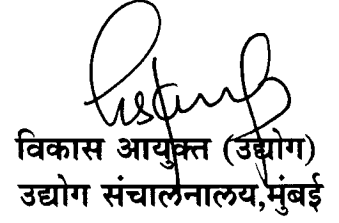 विकास आयुक्त (उद्योग)
उद्योग संचालनालय,मुंबई